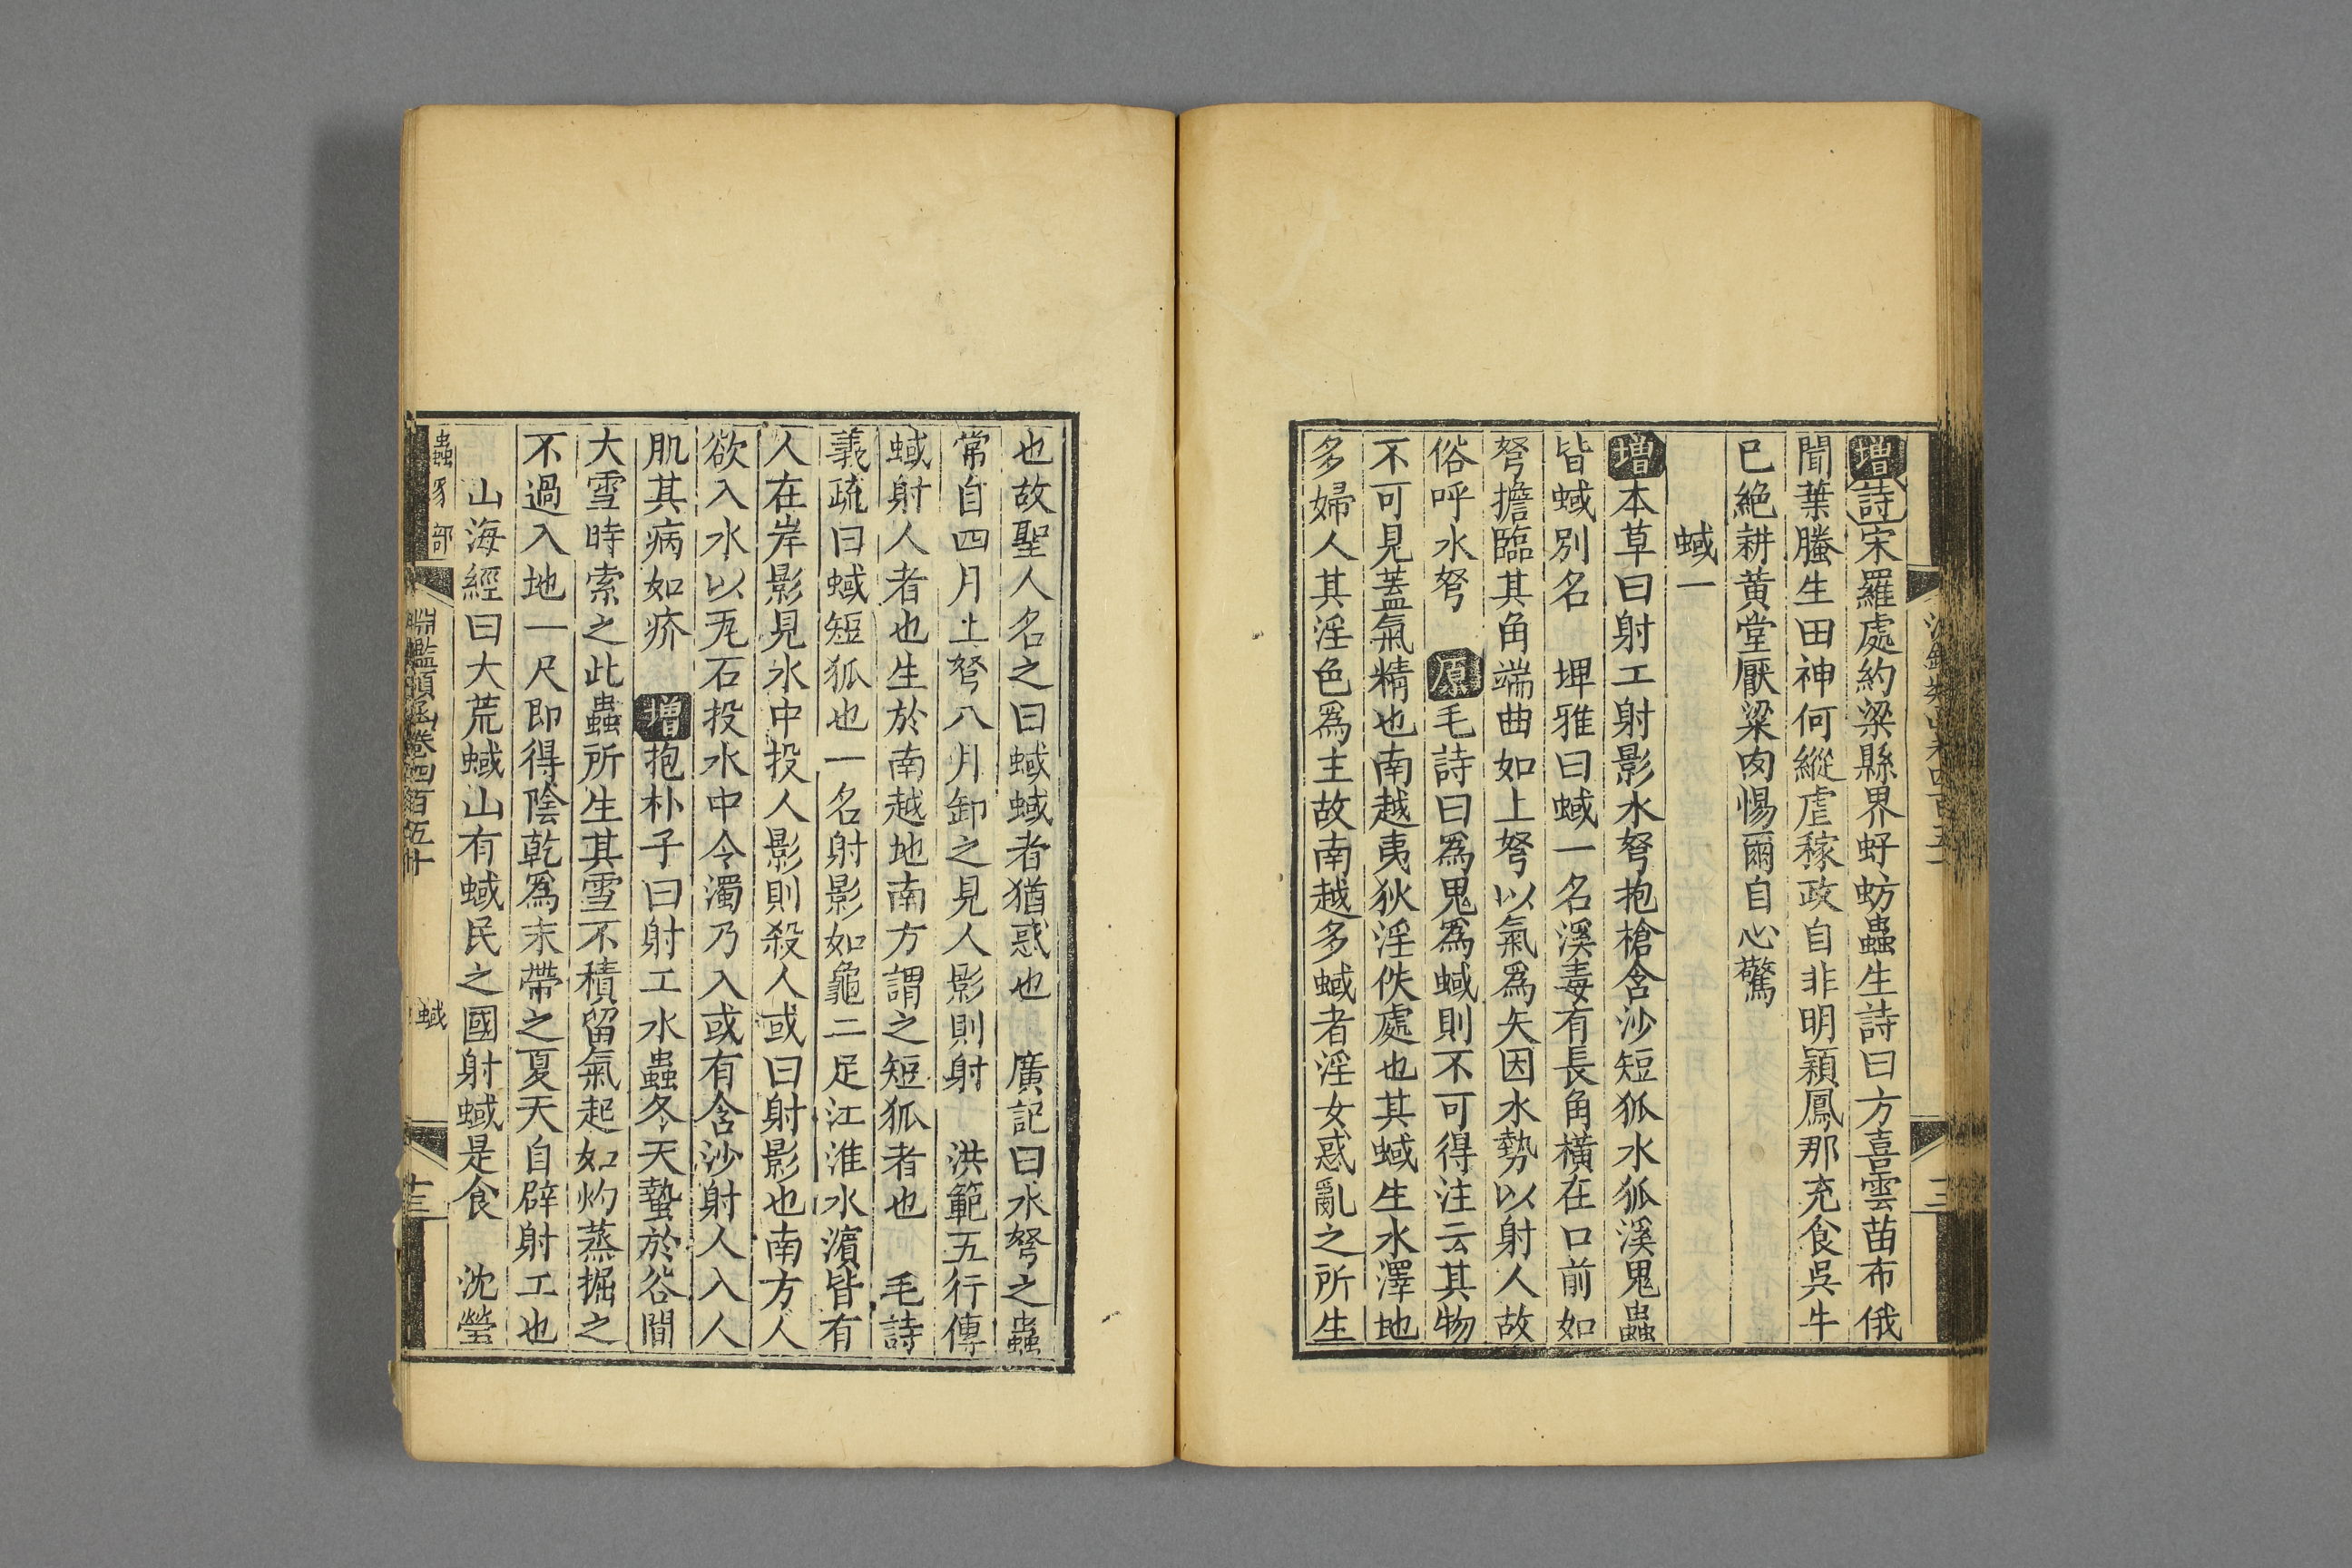 增詩宋羅處約梁縣界虸蚄蟲生詩曰方喜雲苗布俄
聞葉螣生田神何縱虐稼政自非明穎鳳那充食吳牛
已絕耕黃堂厭粱肉惕爾自心驚
蜮一
增本草曰射工射影水弩抱槍含沙短狐水狐溪鬼蟲
皆蜮別名 埤雅曰蜮一名溪毒有長角橫在口前如
弩擔臨其角端曲如上弩以氣爲矢因水勢以射人故
俗呼水弩 原毛詩曰爲鬼爲蜮則不可得注云其物
不可見蓋氣精也南越夷狄淫佚處也其蜮生水澤地
多婦人其淫色爲主故南越多蜮者淫女惑亂之所生
也故聖人名之曰蜮蜮者猶惑也 廣記曰水弩之蟲
常自四月上弩八月卸之見人影則射 洪範五行傳
蜮射人者也生於南越地南方謂之短狐者也 毛詩
義疏曰蜮短狐也一名射影如龜二足江淮水濱皆有
人在岸影見水中投人影則殺人或曰射影也南方人
欲入水以瓦石投水中令濁乃入或有含沙射人入人
肌其病如疥 增抱朴子曰射工水蟲冬天蟄於谷間
大雪時索之此蟲所生其雪不積留氣起如灼蒸掘之
不過入地一尺即得陰乾爲末帶之夏天自辟射工也
山海經曰大荒蜮山有蜮民之國射蜮是食 沈瑩
蟲豸部 淵鑑類函卷四百五十 蜮